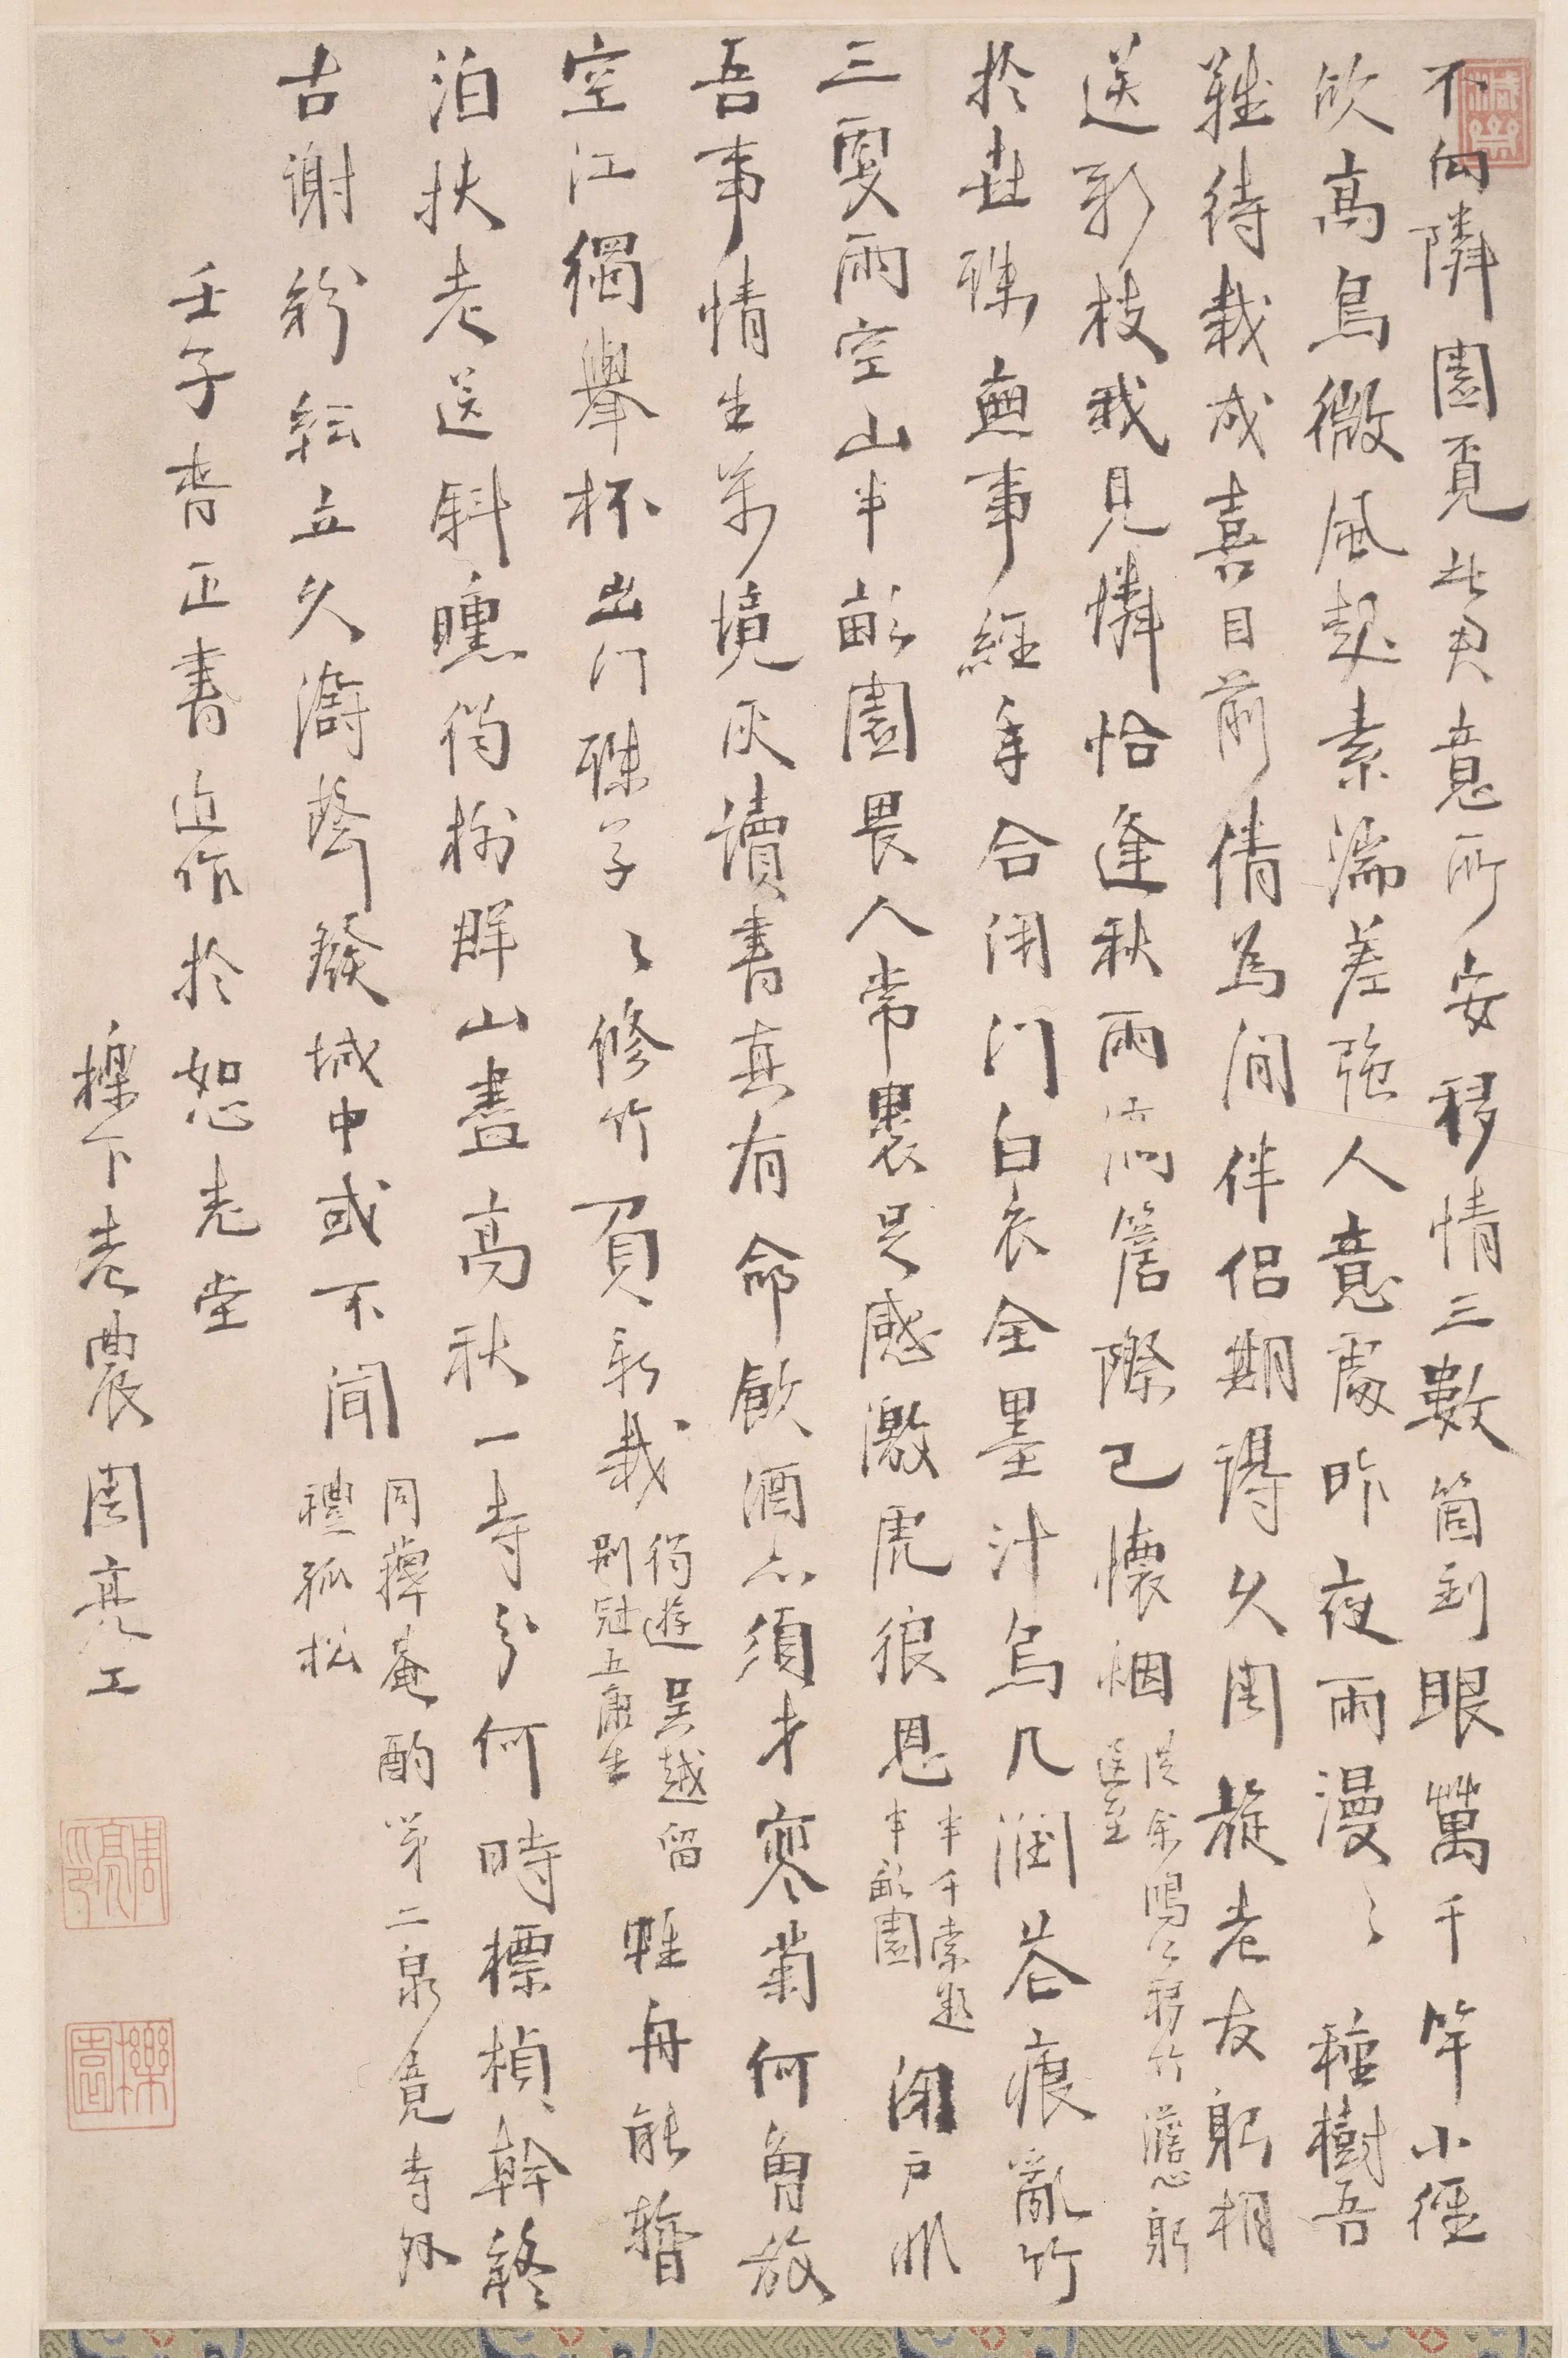 不向隣園覓此君意所安移情三數箇到眼萬千竿小徑
欣高鳥微風起素湍差強人意處昨夜雨漫〻種樹吾
難待栽成喜目前倩為閒伴侶期得久周旋老友躬相
送新枝我見憐恰逢秋雨滴簷際已懷烟
洪余鴻〻移竹澹心躬
送至
於世殊無事經年合閉門白衣全墨汁烏几潤苔痕亂竹
三更雨空山半畝園畏人常裹足感激虎狼恩
半千索題
半畝園
閉戶非
吾事情生萬境灰讀書真有命飲酒亦須才寥菊何曾放
空江獨舉杯出門殊孑〻修竹負新栽
將遊吳越留
別冠五康生
唯舟能暫
泊扶老送斜曛倚樹群山盡高秋一寺分何時標楨幹終
古謝紛紜立久濤聲發城中或不聞
同籜菴酌第二泉竟寺外
禮孤松
壬子嘗正書近作於恕老堂
櫟下老農周亮工
周亮工印
櫟園